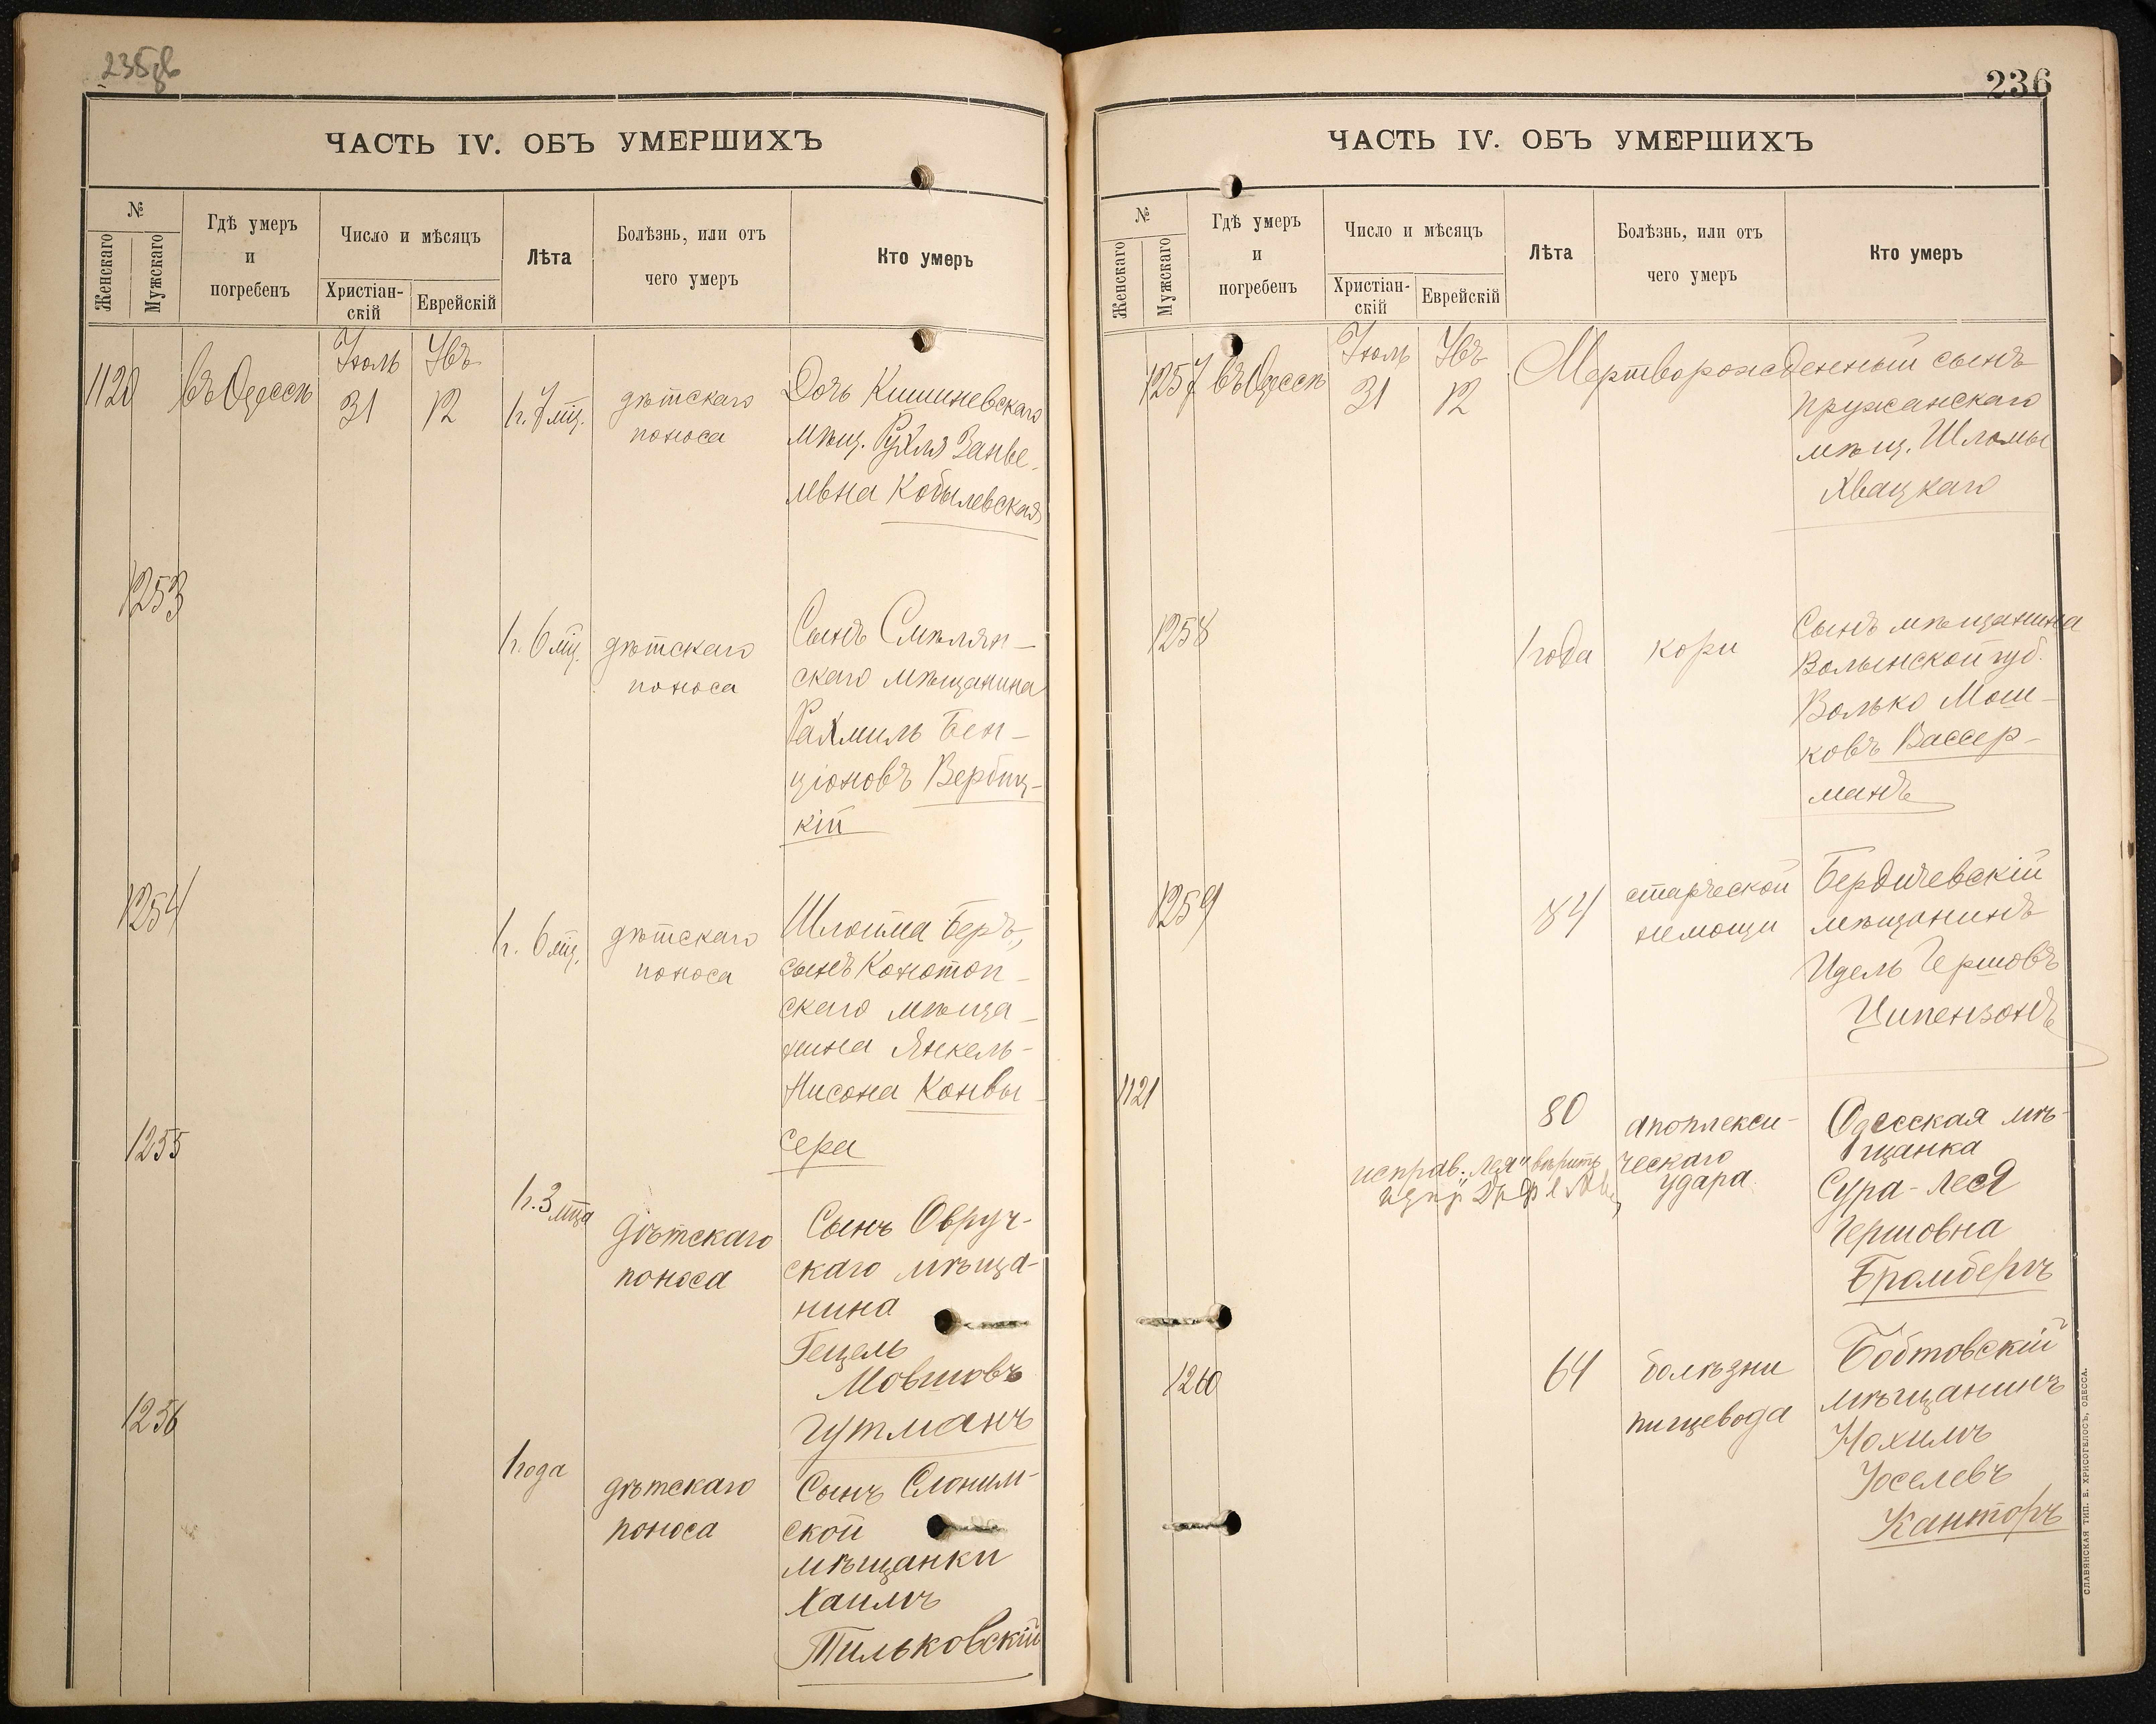 235об
ЧАСТЬ IV. ОБЪ УМЕРШИХЪ
№
Женскаго
Мужскаго
Гдѣ умеръ
и
погребенъ
Число и мѣсяцъ
Христіан-
скій
Еврейскій
Лѣта
Болѣзнь, или отъ
чего умеръ
Кто умеръ
1120
въ Одессѣ
Іюль
31
Увъ
12
1 г. 7 мц.
дѣтскаго
поноса
Дочь Кишиневскаго
мѣщ. Рухля Занве-
левна Кобылевская
1253
1 г. 6 мц.
дѣтскаго
поноса
Сынъ Смѣлян-
скаго мѣщанина
Рахмиль Бен-
ціоновъ Вербиц-
кій
1254
1 г. 6 мц.
дѣтскаго
поноса
Шлойма Беръ,
сынъ Конотоп-
скаго мѣща-
нина Янкель-
Нисона Конвы-
сера
1255
1 г. 3 мца
дѣтскаго
поноса
Сынъ Овруч-
скаго мѣща-
нина
Гецель
Мовшовъ
Гутманъ
1256
1 года
дѣтскаго
поноса
Сынъ Слоним-
ской
мѣщанки
Хаимъ
Тильковскій
236
ЧАСТЬ IV. ОБЪ УМЕРШИХЪ
№
Женскаго
Мужскаго
Гдѣ умеръ
и
погребенъ
Число и мѣсяцъ
Христіан-
скій
Еврейскій
Лѣта
Болѣзнь, или отъ
чего умеръ
Кто умеръ
1257
въ Одессѣ
Іюль
31
Увъ
12
Мертворожденный сынъ
Пружанскаго
мѣщ. Шломы
Хвацкаго
1258
1 года
кори
Сынъ мѣщанина
Волынской губ.
Волько Мош-
ковъ Вассер-
манъ
1259
84
старческой
немощи
Бердичевскій
мѣщанинъ
Идель Гершовъ
Ципензонъ
1121
80
апоплекси-
ческаго
удара
Одесская мѣ-
щанка
Сура-Леся
Гершовна
Бромбергъ
исправ. „Леся" вѣрить
1260
64
болѣзни
пищевода
мѣщанинъ
Нохимъ
Іоселевъ
Канторъ
СЛАВЯНСКАЯ ТИП. Е. ХРИСОГЕЛОСЪ, ОДЕССА.